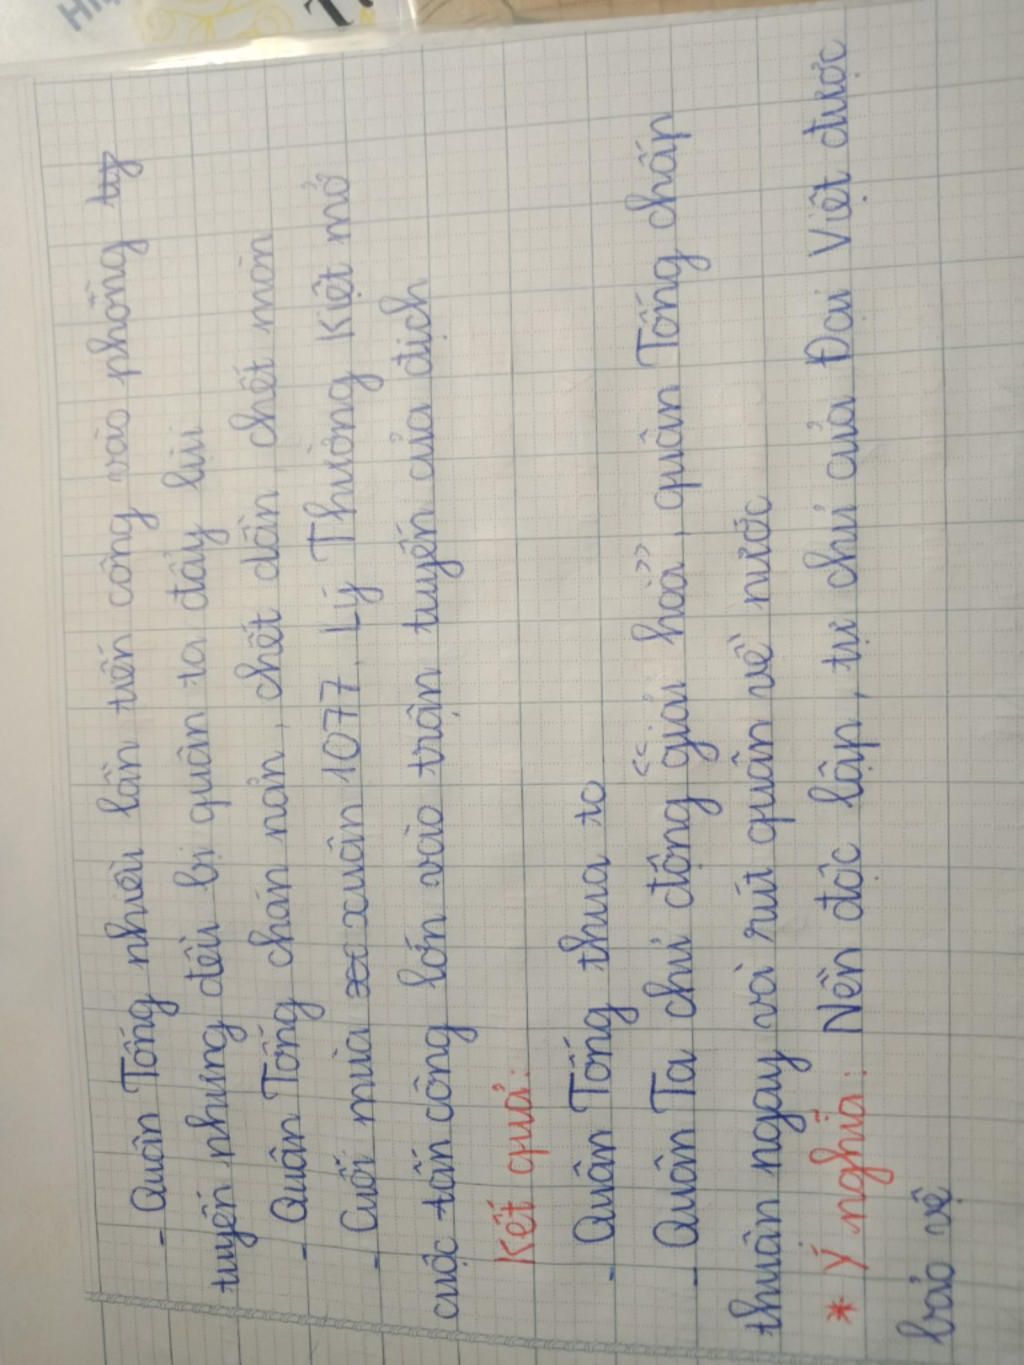 - Quân Tống nhiều lần tiến công vào phòng
tuyến nhưng đều bị quân ta đẩy lùi
- Quân Tống chán nản, chết dần chết mòn
- Cuối mùa xuân 1077, Lý Thường Kiệt mở
cuộc tấn công lớn vào trận tuyến của địch
Kết quả:
- Quân Tống thua to
- Quân Ta chủ động "giải hoà", quân Tống chấp
thuận ngay và rút quân về nước
* Ý nghĩa: Nền độc lập, tự chủ của Đại Việt được
bảo vệ